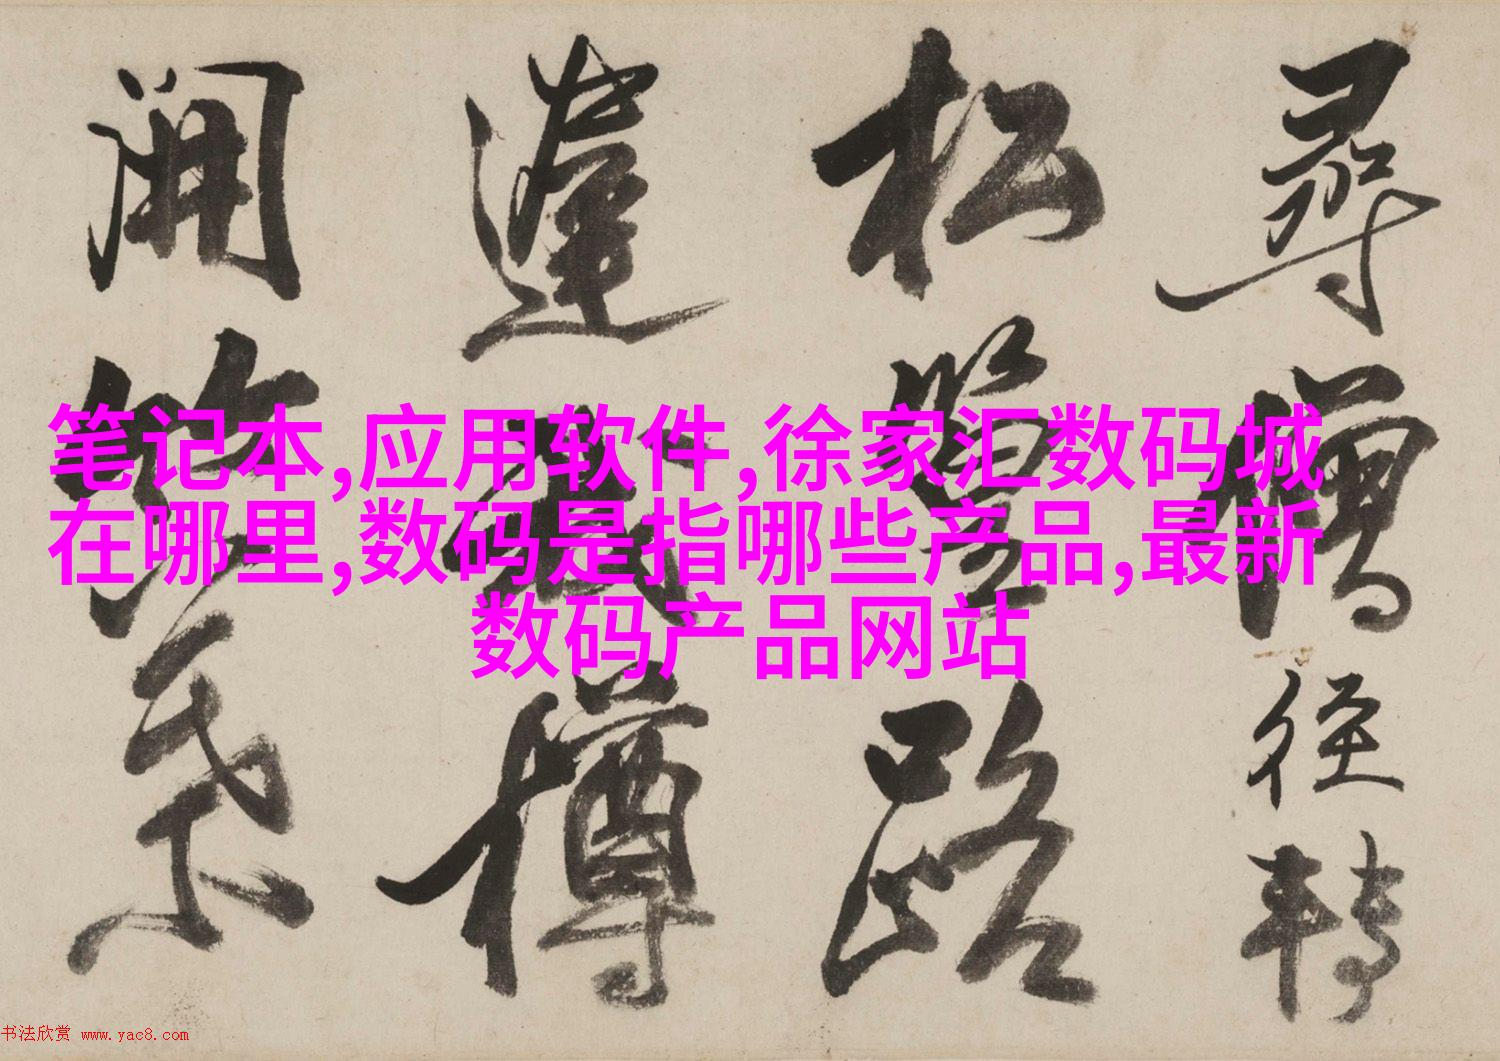 笔记本,应用软件,徐家汇数码城
在哪里,数码是指哪些产品,最新
数码产品网站
尋僧徑轉
松路
蓬樽
開
书法欣赏 www.yac8.com